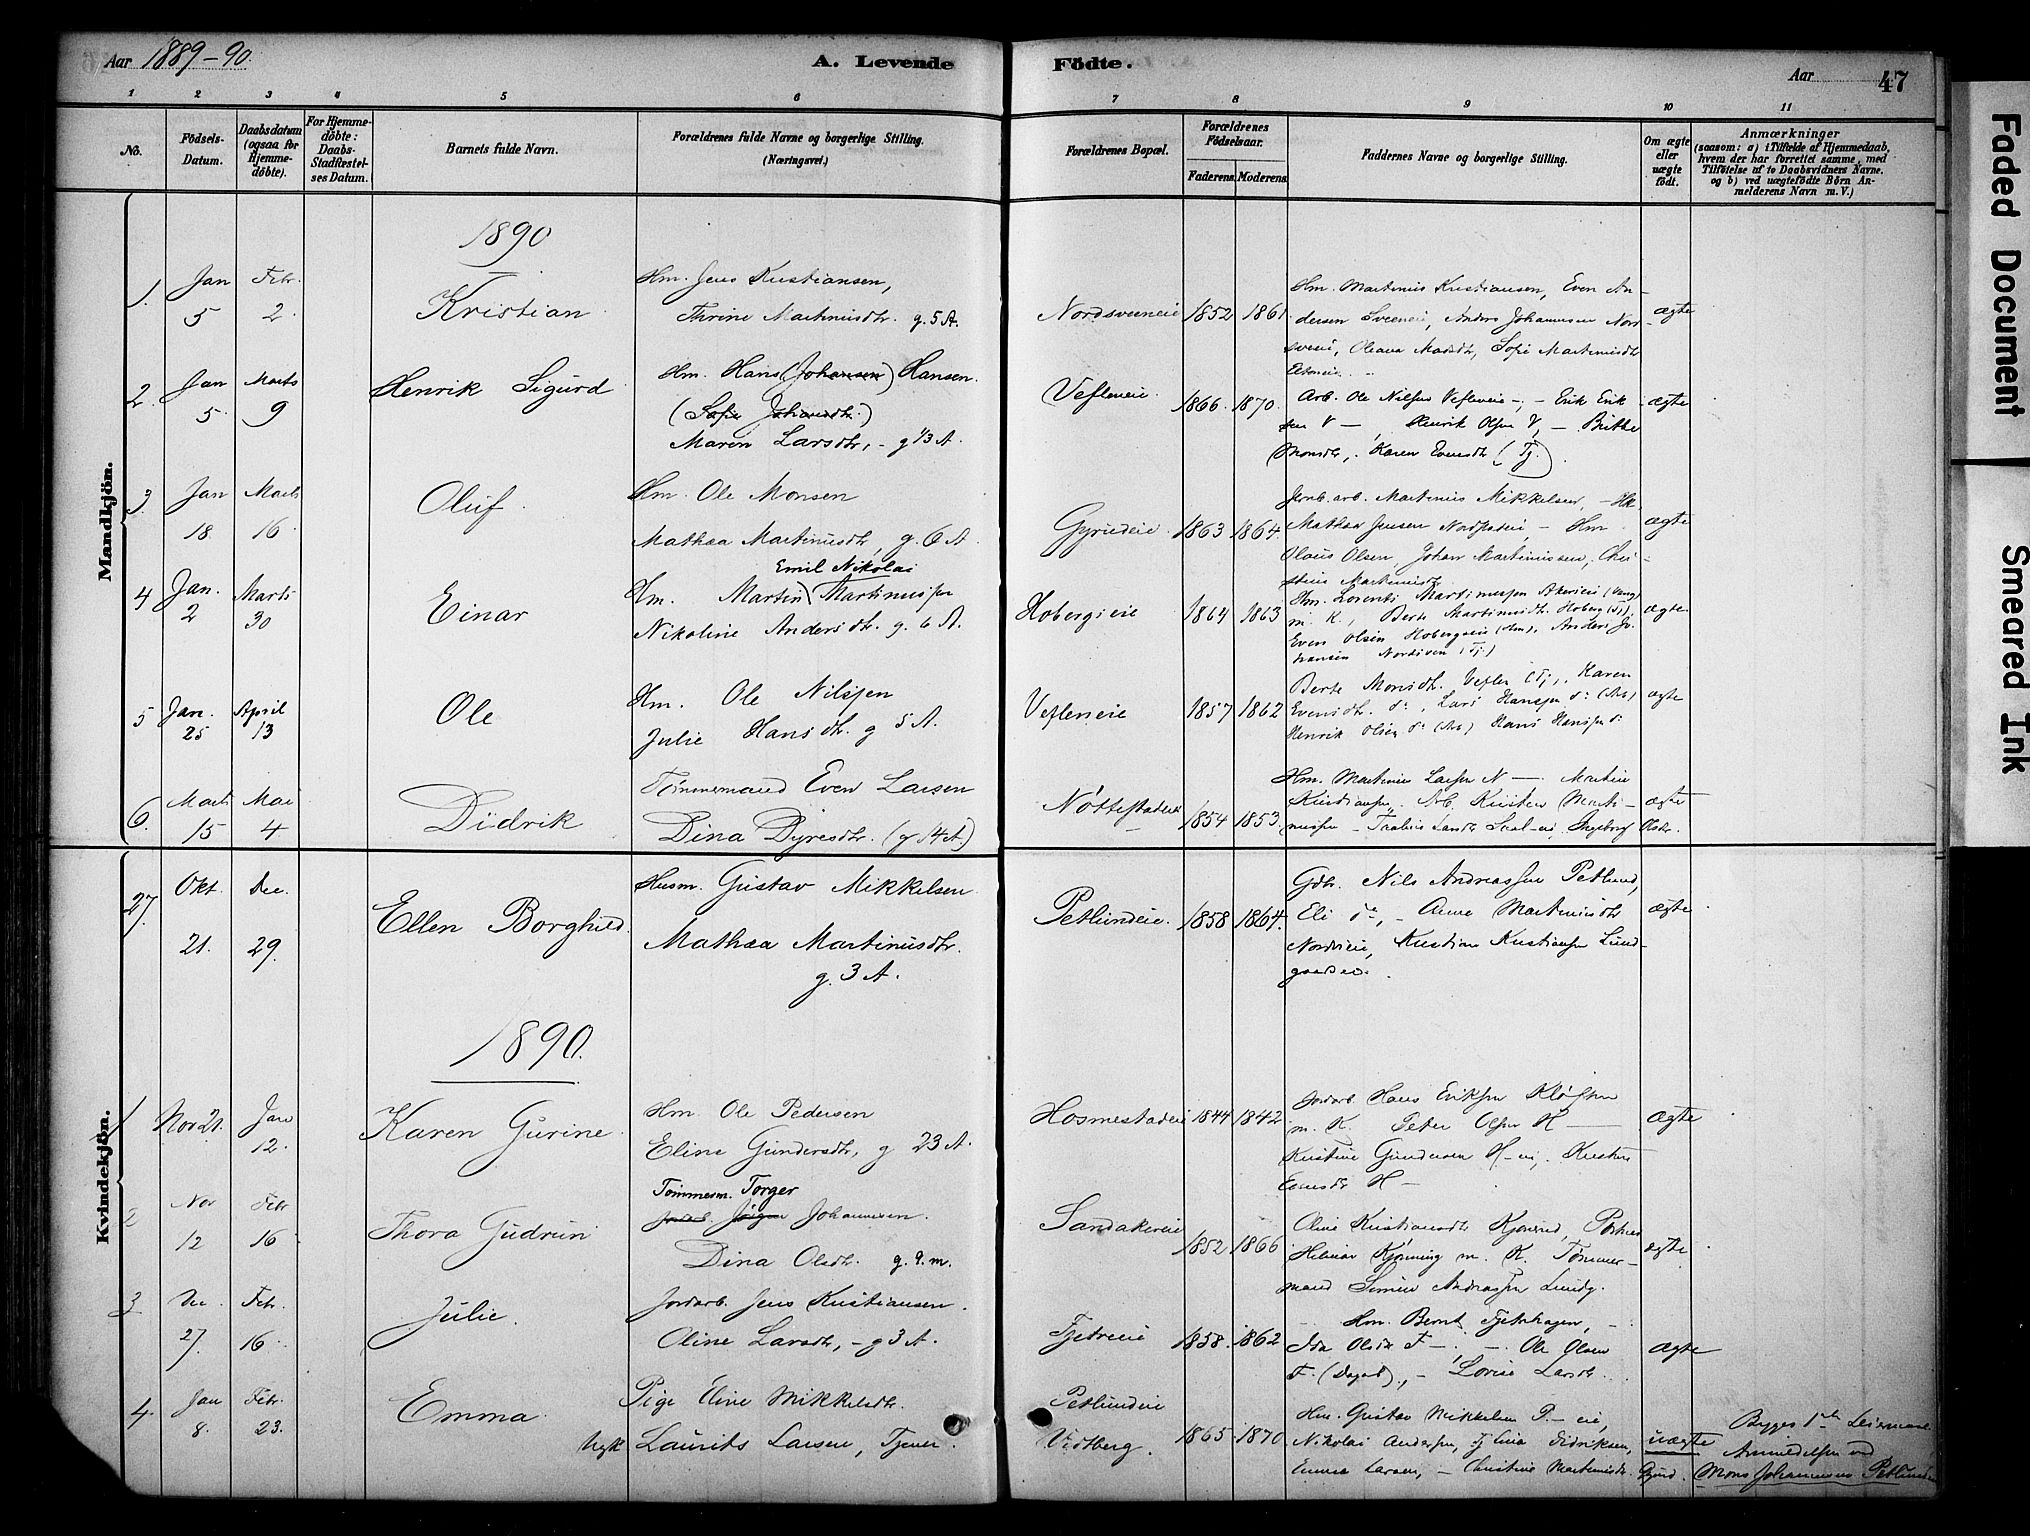 Aar 1889-90.
A. Levende
Födte.
Aar 47
1 2 3 4 5 6 7 8 9 10 11
No.
Födsels-
Datum.
Daabsdatum
(ogsaa for
Hjemme-
döbte).
For Hjemme-
döbte:
Daabs-
Stadfæstel-
ses Datum.
Barnets fulde Navn.
Forældrenes fulde Navne og borgerlige Stilling.
(Næringsvei.)
Forældrenes Bopæl.
Forældrenes
Födselsaar.
Faderens. Moderens.
Faddernes Navne og borgerlige Stilling.
Om ægte
eller
uægte
födt.
Anmærkninger
(saasom: a) i Tilfælde af Hjemmedaab,
hvem der har forrettet samme, med
Tilföielse af to Daabsvidners Navne.
og b) ved uægtefödte Börn An-
melderens Navn m. V.)
Mandkjön.
1890
1.
Jan
5
Febr.
2
Kristian
Hm. Jens Kristiansen,
Thrine Martinusdtr. g. 5 A.
Nordsveeneie 1852 1861
Hm. Martinius Kristiansen, Even An-
dersen Sveeneie, Anders Johannesen Nord
sveeneie, Oleana Madsdtr, Sofie Martinusdtr
ægte
2.
Jan
5.
Marts
9
Henrik Sigurd
Hm. Hans (Johansen) Hansen.
(Sofie Johansdtr.)
Maren Larsdtr, - g 1/3 A.
Vefleneie. 1866. 1870.
Arb. Ole Nilsen Vefleneie -, - Erik Erik
sen V - , Henrik Olsen V, - Birthe
Monsdtr, Karen Evensdtr (Tj).
ægte
3
Jan
18.
Marts
16
Oluf
Hm. Ole Monsen
Mathea Martinusdtr, g. 6 A.
Gyrudeie 1863 1864.
Jernb.arb. Martinius Mikkelsen, -
Mathea Jensen - Hm
Olaus Olsen, Johan Martinussen, Chri-
stine Martinusdtr
ægte
4
Jan.
2
Marts
30
Einar
Emil Nikolai
Hm. Martin Martinussen
Nikoline Andersdtr. g. 6 A.
Hobergseie 1864 1863
Hm. Lorents Martinussen Akerseie (Vang)
m. K., Berte Martinusdtr. Hoberg (Tj),
Even Olsen Hobergseie (Hm), Anders Jo-
hansen Nordsveen (Tj.)
ægte
5
Jan.
25
April
13
Ole
Hm. Ole Nilssen
Julie Hansdtr. g 5 A.
Vefleneie 1857 1862
Berte Monsdtr. Veflen (Tj), Karen
Evensdtr. do, Lars Hanssen do (Arb)
Henrik Olsen do (Arb) Hans Hanssen do
ægte
6.
Marts
15
Mai
4
Didrik
Tømmermand Even Larsen
Dina Dyresdtr. (g 14 A.)
Nøttestadeie 1854 1853.
Hm. Martinius Larsen N -
Kristiansen. Arb. Kristen Marti-
nussen - Ingeborg Olsdtr.
ægte
Kvindekjön.
27.
Okt.
21.
Dec.
29.
Ellen Borghild.
Husm. Gustav Mikkelsen
Mathæa Martinusdtr.
g. 3 A.
Petlundeie. 1858 1864.
Gdbr. Nils Andreassen Petlund,
Eli do, - Anne Martinusdtr
Kristian Kristiansen Lund-
gaardseie.
ægte
1890.
1
Nov 21.
Jan
12.
Karen Gurine
Hm Ole Pedersen
Eline Gundersdtr, g 23 A.
Hosmestadeie 1844 1842
Jordarb. Hans Eriksen
m. K. Peter Olsen H -
Kristine Gundersen H - ei,
ægte
2
Nov
12
Febr
16
Thora Gudrun
Tømmerm. Torger
Jordarb. Jørgen Johannesen.
Dina Olsdtr. g. 9. m.
Sandakereie 1852 1866
Oline Kristiansdtr
Hilmar Kjønning m. K. Tømmer-
mand Simen Andreassen
ægte
3
Dec.
27.
Febr.
16
Julie.
Jordarb. Jens Kristiansen.
Oline Larsdtr, - g 3 A.
Tjetreeie 1858. 1862
Hm. Bernt
Ida Olsdtr T - , - Ole Olsen
T. (Dagarb)., - Lovise Larsdtr.
ægte
4.
Jan
8.
Febr.
23.
Emma
Pige Eline Mikkelsdtr.
Ungk Laurits Larsen, Tjener.
Petlundeie
Vidtberg. 1865. 1870
Hm. Gustav Mikkelsen P. - eie,
Nikolai Andersen, Tj Didriksen,
Emma Larsen, - Christine Martinusdtr.
uægte
Begges 1ste Leiermaal
Anmeldelsen ved
Mons Johannesen Petlundeie
Faded Document
Smeared Ink